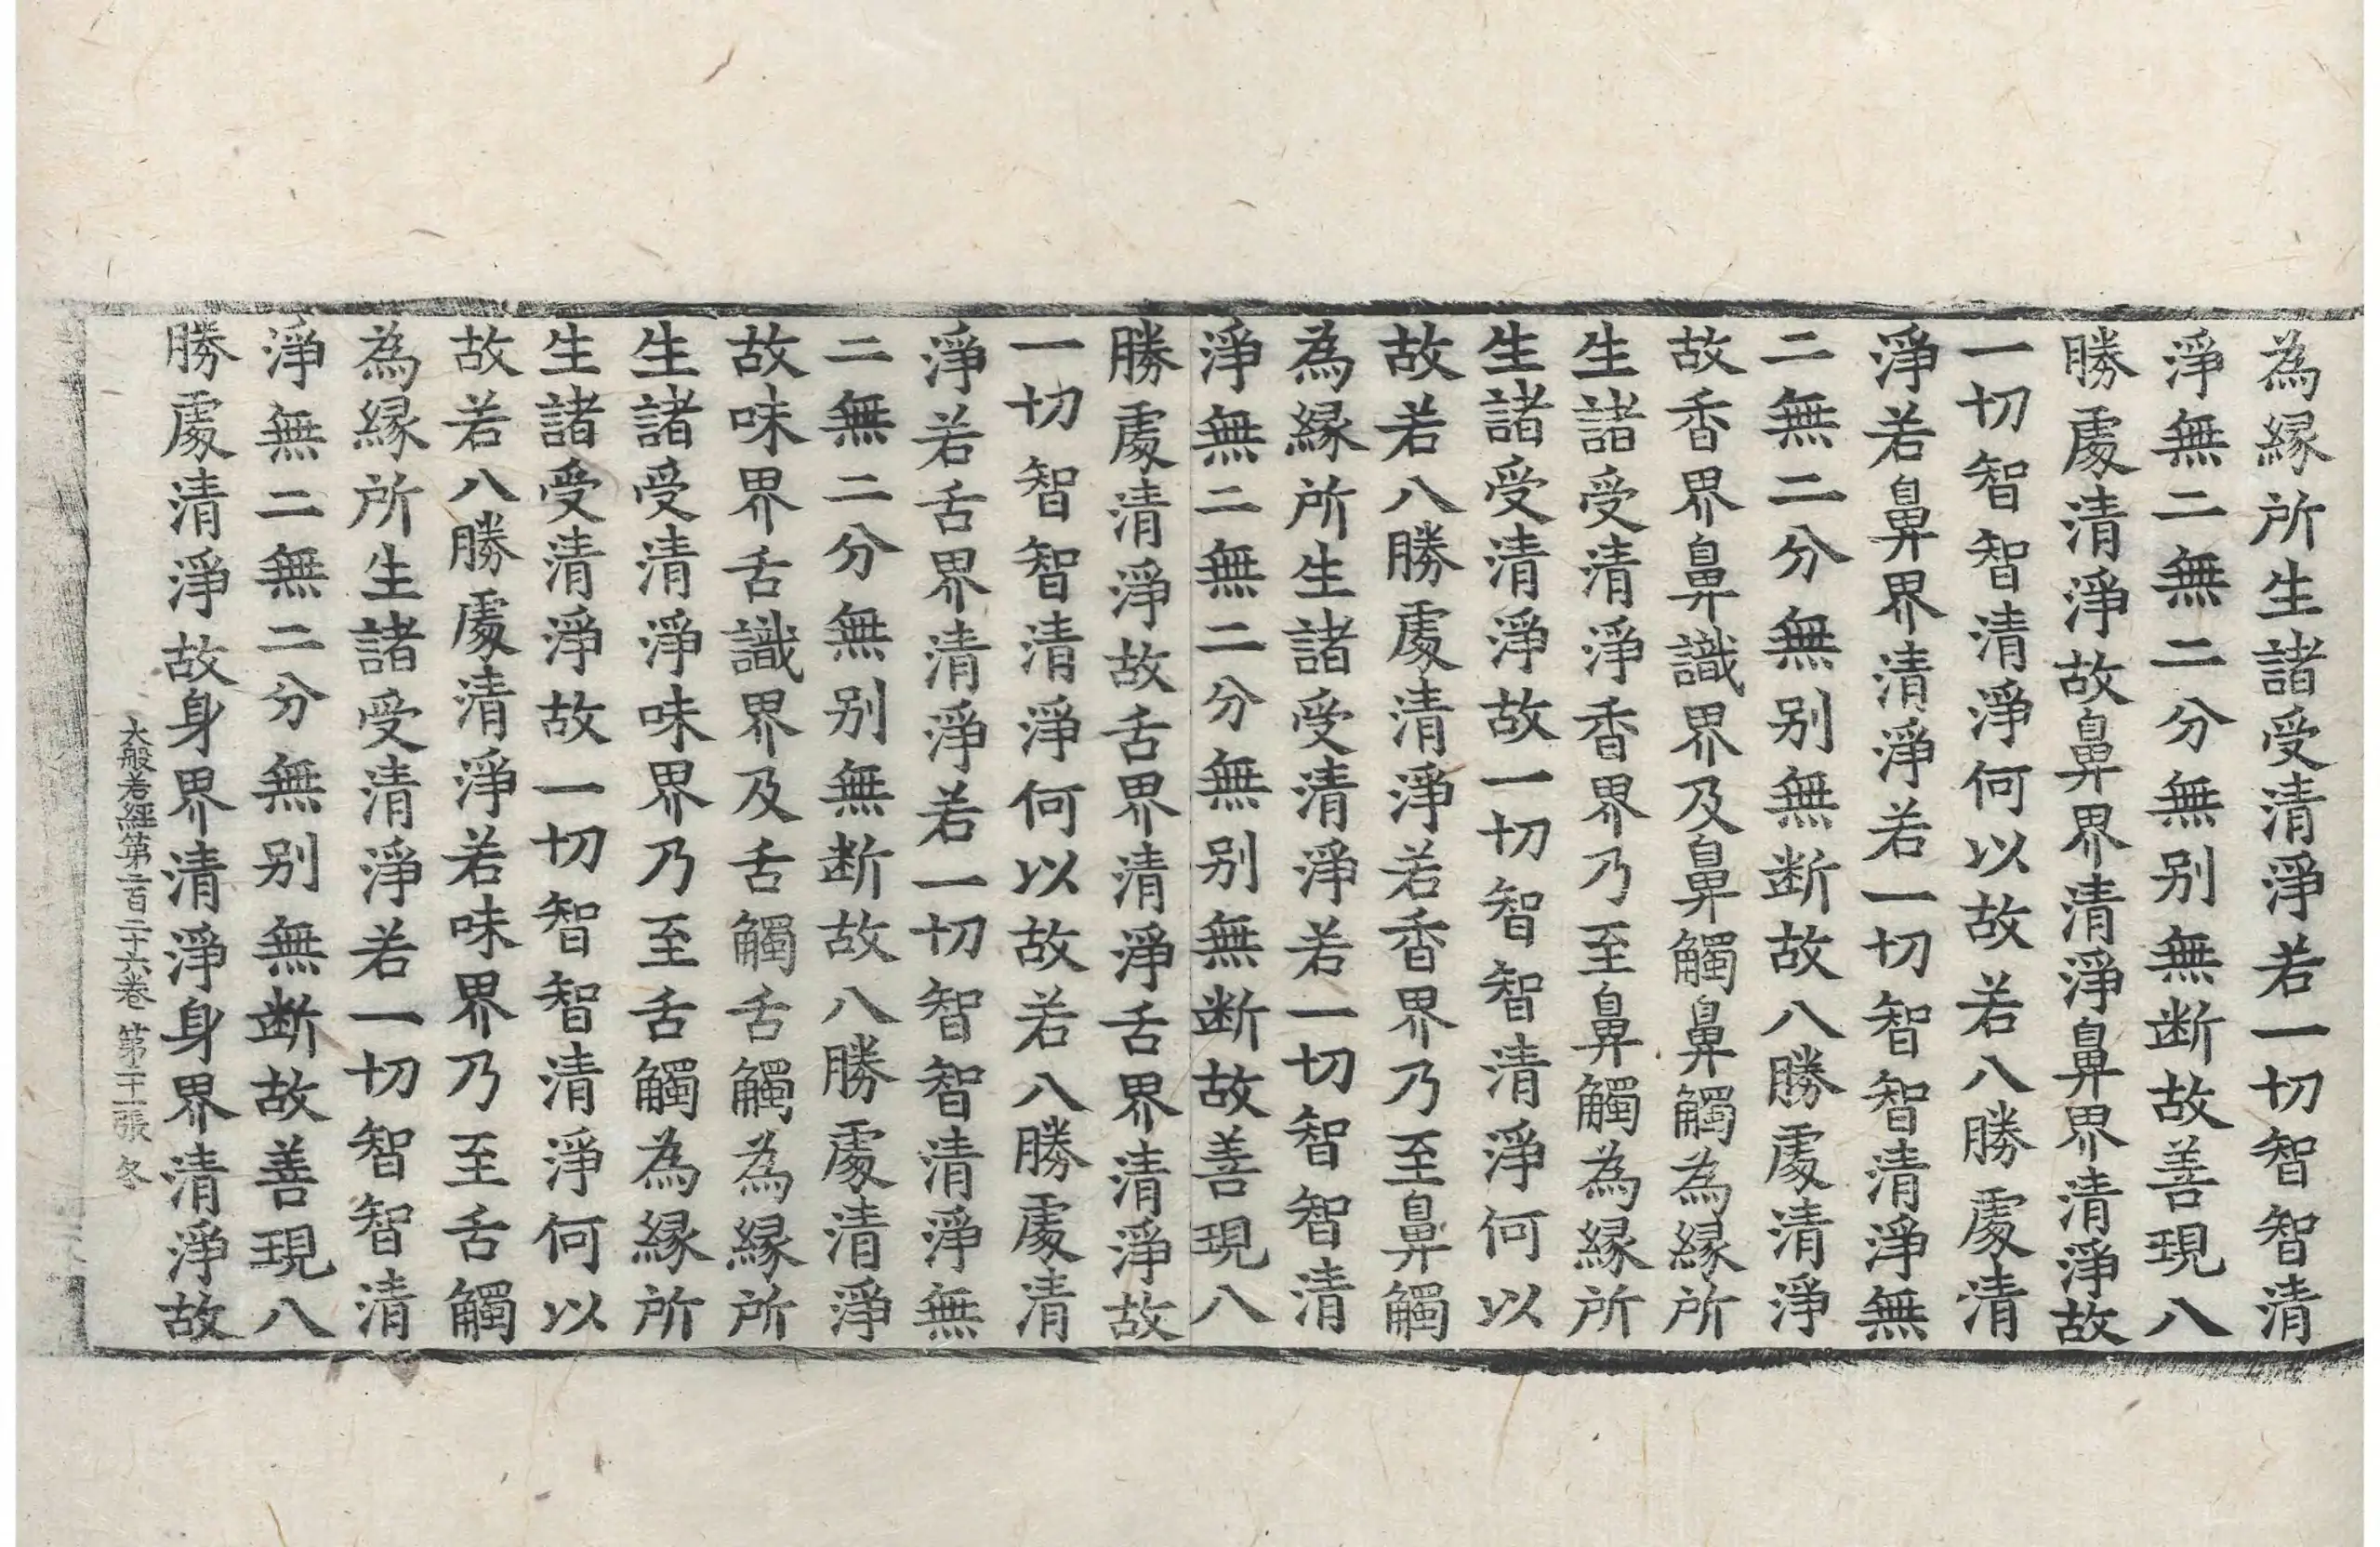 為縁所生諸受清淨若一切智智清
淨無二無二分無别無断故善現八
勝處清淨故鼻界清淨鼻界清淨故
一切智智清淨何以故若八勝處清
淨若鼻界清淨若一切智智清淨無
二無二分無别無断故八勝處清淨
故香界鼻識界及鼻觸鼻觸為縁所
生諸受清淨香界乃至鼻觸為縁所
生諸受清淨故一切智智清淨何以
故若八勝處清淨若香界乃至鼻觸
為縁所生諸受清淨若一切智智清
淨無二無二分無别無断故善現八
勝處清淨故舌界清淨舌界清淨故
一切智智清淨何以故若八勝處清
淨若舌界清淨若一切智智清淨無
二無二分無别無断故八勝處清淨
故味界舌識界及舌觸舌觸為縁所
生諸受清淨味界乃至舌觸為縁所
生諸受清淨故一切智智清淨何以
故若八勝處清淨若味界乃至舌觸
為縁所生諸受清淨若一切智智清
淨無二無二分無别無断故善現八
勝處清淨故身界清淨身界清淨故
大般若經第二百二十六卷 第張 冬